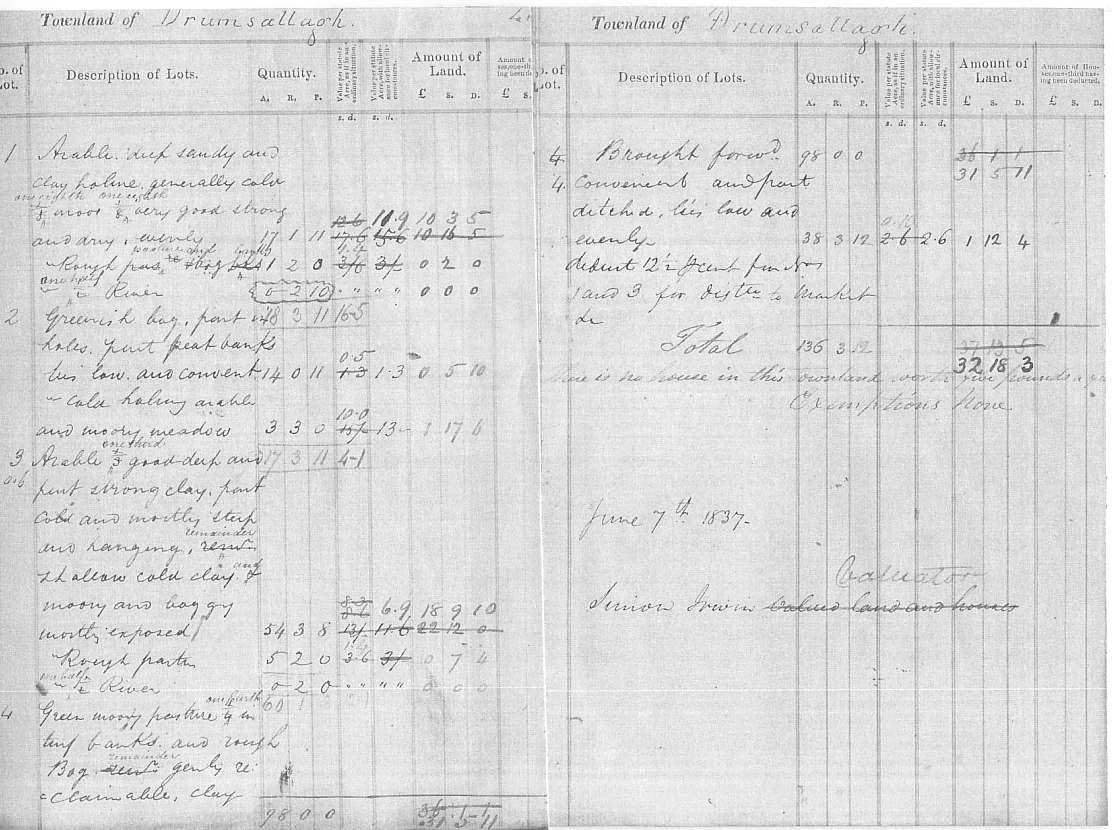 Townland of Drumsallagh.
No. of Lot.
Description of Lots.
Quantity.
A. R. P.
Value per statute Acre, as if in an ordinary situation.
Value per statute Acre, with allowance for local circumstances.
s. d. s. d.
Amount of Land.
£ S. D.
1 Arable. deep sandy and
clay holme. generally cold
one eighth one eighth
1/8 moor 1/8 very good strong
12.6 11.9 10 3 5
and dry, evenly 17 1 11 17.6 15.6 10 16 5
"Rough pas. 1 2 0 3/6 3/ 0 2 0
one half
" 1/2 River 0 2 10 " " " " 0 0 0
2 Greenish bog, part in 48 3 11 16-5
holes. part peat banks
0.5
lies low. and convent. 14 0 11 1.3 1.3 0 5 10
" Cold holmy arable
10.0
and moory meadow 3 3 0 15/ 13- 1 17 6
one third
3 Arable 1/3 good deep and 17 3 11 4-1
part strong clay, part
cold and mostly steep
remainder
and hanging,
and
shallow cold clay &
moory and boggy 6.9 18 9 10
mostly exposed 54 3 8 13/ 11.6 22 12 0
"Rough pastn 5 2 0 3.6 3/ 0 7 4
one half
" 1/2 River 0 2 0 " " " " 0 0 0
one fourth
4 Green moory pasture 1/4 in
turf banks. and rough
remainder
Bog gently re:
claimable, clay
98 0 0 36 1 1
31 5 11
Townland of Drumsallagh.
No. of Lot.
Description of Lots.
Quantity.
A. R. P.
Value per statute Acre, as if in an ordinary situation.
Value per statute Acre, with allowance for local circumstances.
s. d. s. d.
Amount of Land.
£ S. D.
Amount of Houses, one-third having been deducted.
£ S. D.
4 Brought forwd. 98 0 0 36 1 1
31 5 11
4. Convenient and part
ditched, lies low and
0.10
evenly 38 3 12 2.6 2.6 1 12 4
deduct 12½ pcent from Nos
1 and 3 for distce to market
&c
Total 136 3 12 37 13 5
32 18 3
There is no house in this townland worth five pounds a year
Exemptions None
June 7th 1837-
Valuator
Simon Irwin valued land and houses